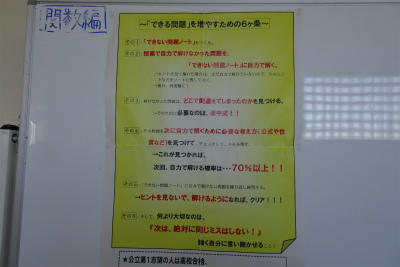 関数編
～「できる問題」を増やすための6ヶ条～
その1.「できない問題ノート」をつくる。
その2. 授業で自力で解けなかった問題を、
「できない問題ノート」に自力で解く。
その3. 解けなかった問題は、どこで間違えてしまったのかを見つける。
必要なのは、途中式！！
その4. 次に自力で解くために必要な考え方(公式や性
質など)を見つけて チェックして、メモを残す。
→これが見つかれば、
次回、自力で解ける確率は･･･70%以上！！
その5.「できない問題ノート」
→ヒントを見ないで、解けるようになれば、クリア！！！
その6. そして、何より大切なのは、
『次は、絶対に同じミスはしない！』
強く自分に言い聞かせること！
★公立第1志望の人は高校合格、